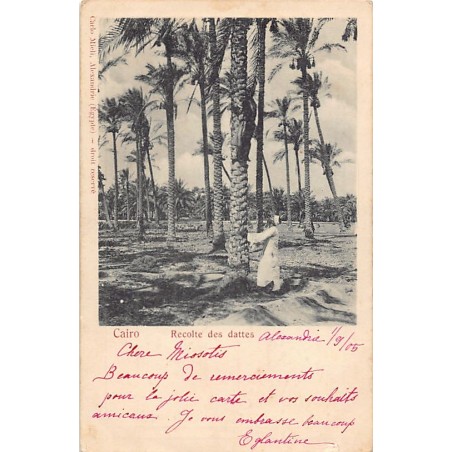 Carlo Mieli, Alexandrie (Egypte) — droit reservé
Cairo Recolte des dattes Alexandrie 1/9/05
Chere Miosotis
Beaucoup de remerciements
pour la jolie carte et vos souhaits
amicaux. Je vous embrasse beaucoup
Eglantine